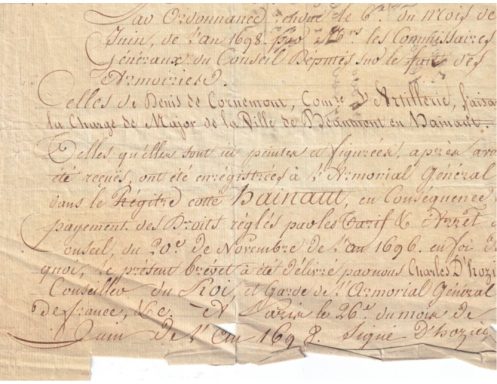 Par Ordonnance rendue le 6e. du Mois de
Juin, de l'an 1698. par Mrs. les Commissaires
Généraux du Conseil Députés sur le fait des
Armoiries.
Celles de Denis de Cornemont, Comre. d'Artillerie, faisa
la Charge de Major de la Ville de Beaumont en Hainaut.
Telles qu'elles sont ici peintes et figurées, après avo
été reçues, ont été enregistrées à l'Armorial Général
dans le Registre cotté Hainaut, en Conséquence
payement des Droits réglés par les Tarif & Arrêt
Conseil, du 20e. de Novembre de l'an 1696. en foi d
quoi, le présent brévet a été délivré par nous Charles D'hozi
Conseiller du Roi, et Garde de l'Armorial Général
de france, &c. A Paris le 26e. du mois de
Juin de l'an 1698. Signé D'hozier